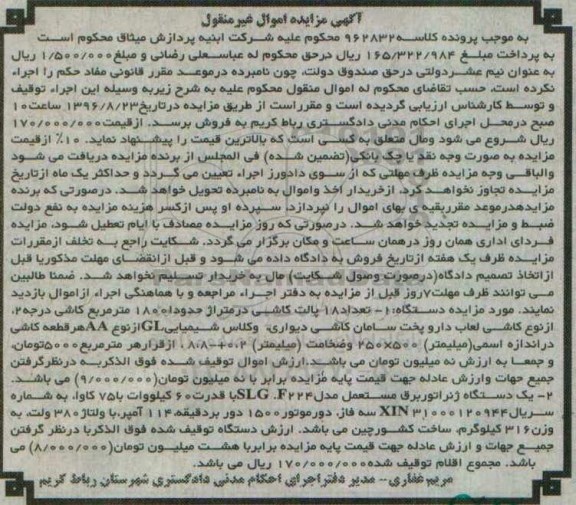 آگهی مزایده اموال غیرمنقول
به موجب پرونده کلاسه ۹۶۲۸۳۲ محکوم علیه شرکت ابنیه پردازش میثاق محکوم است
به پرداخت مبلغ ۱۶۵/۳۲۲/۹۸۴ ریال درحق محکوم له عباسعلی رضائی و مبلغ ۱/۵۰۰/۰۰۰ ریال
به عنوان نیم عشردولتی درحق صندوق دولت، چون نامبرده درموعد مقرر قانونی مفاد حکم را اجراء
نکرده است، حسب تقاضای محکوم له اموال منقول محکوم علیه به شرح زیربه وسیله این اجراء توقیف
و توسط کارشناس ارزیابی گردیده است و مقرراست از طریق مزایده درتاریخ ۱۳۹۶/۸/۲۳ ساعت ۱۰
صبح درمحل اجرای احکام مدنی دادگستری رباط کریم به فروش برسد. ازقیمت ۱۷۰/۰۰۰/۰۰۰
ریال شروع می شود ومال متعلق به کسی است که بالاترین قیمت را پیشنهاد نماید. ۱۰٪ ازقیمت
مزایده به صورت وجه نقد یا چک بانکی(تضمین شده) فی المجلس از برنده مزایده دریافت می شود
والباقی وجه مزایده ظرف مهلتی که از سوی دادورز اجراء تعیین می گردد و حداکثر یک ماه ازتاریخ
مزایده تجاوز نخواهد کرد، ازخریدار اخذ واموال به نامبرده تحویل خواهد شد. درصورتی که برنده
مزایدهدرموعد مقرربقیه ی بهای اموال را نپردازد، سپرده او پس ازکسر هزینه مزایده به نفع دولت
ضبط و مزایده تجدید خواهد شد. درصورتی که روز مزایده مصادف با ایام تعطیل شود، مزایده
فردای اداری همان روز درهمان ساعت و مکان برگزار می گردد. شکایت راجع به تخلف ازمقررات
مزایده ظرف یک هفته ازتاریخ فروش به دادگاه داده می شود و قبل ازانقضای مهلت مذکوریا قبل
ازاتخاذ تصمیم دادگاه(درصورت وصول شکایت) مال به خریدار تسلیم نخواهد شد. ضمنا طالبین
می توانند ظرف مهلت ۷روز قبل از مزایده به دفتر اجراء مراجعه و با هماهنگی اجراء ازاموال بازدید
نمایند. مورد مزایده دستگاه: ۱- تعداد ۱۸ پالت کاشی درمتراژ حدودا ۱۸۰۰ مترمربع کاشی درجه ۲،
ازنوع کاشی لعاب دارو پخت سامان کاشی دیواری، وکلاس شیمیایی GL ازنوع AA هرقطعه کاشی
دراندازه اسمی(میلیمتر) ۵۰۰×۲۵۰ وضخامت (میلیمتر) ۰/۲+-۸/۸، ازقرارهر مترمربع ۵۰۰۰تومان،
و جمعا به ارزش نه میلیون تومان می باشد.ارزش اموال توقیف شده فوق الذکربه درنظرگرفتن
جمیع جهات وارزش عادله جهت قیمت پایه مزایده برابر با نه میلیون تومان(۹/۰۰۰/۰۰۰) می باشد.
۲- یک دستگاه ژنراتوربرق مستعمل مدل SLG .F۲۲۴ با قدرت ۶۰ کیلووات با ۷۵ کاوا، به شماره
سریال XIN ۳۱۰۰۰۱۲۰۹۴۴ سه فاز، دورموتور ۱۵۰۰ دور بردقیقه، ۱۱۴ آمپر،با ولتاژ ۳۸۰ ولت، به
وزن ۳۱۶ کیلوگرم، ساخت کشورچین می باشد. ارزش دستگاه توقیف شده فوق الذکربا درنظر گرفتن
جمیع جهات و ارزش عادله جهت قیمت پایه مزایده برابربا هشت میلیون تومان(۸/۰۰۰/۰۰۰) می
باشد. مجموع اقلام توقیف شده ۱۷۰/۰۰۰/۰۰۰ ریال می باشد.
مریم غفاری-- مدیر دفتراجرای احکام مدنی دادگستری شهرستان رباط کریم